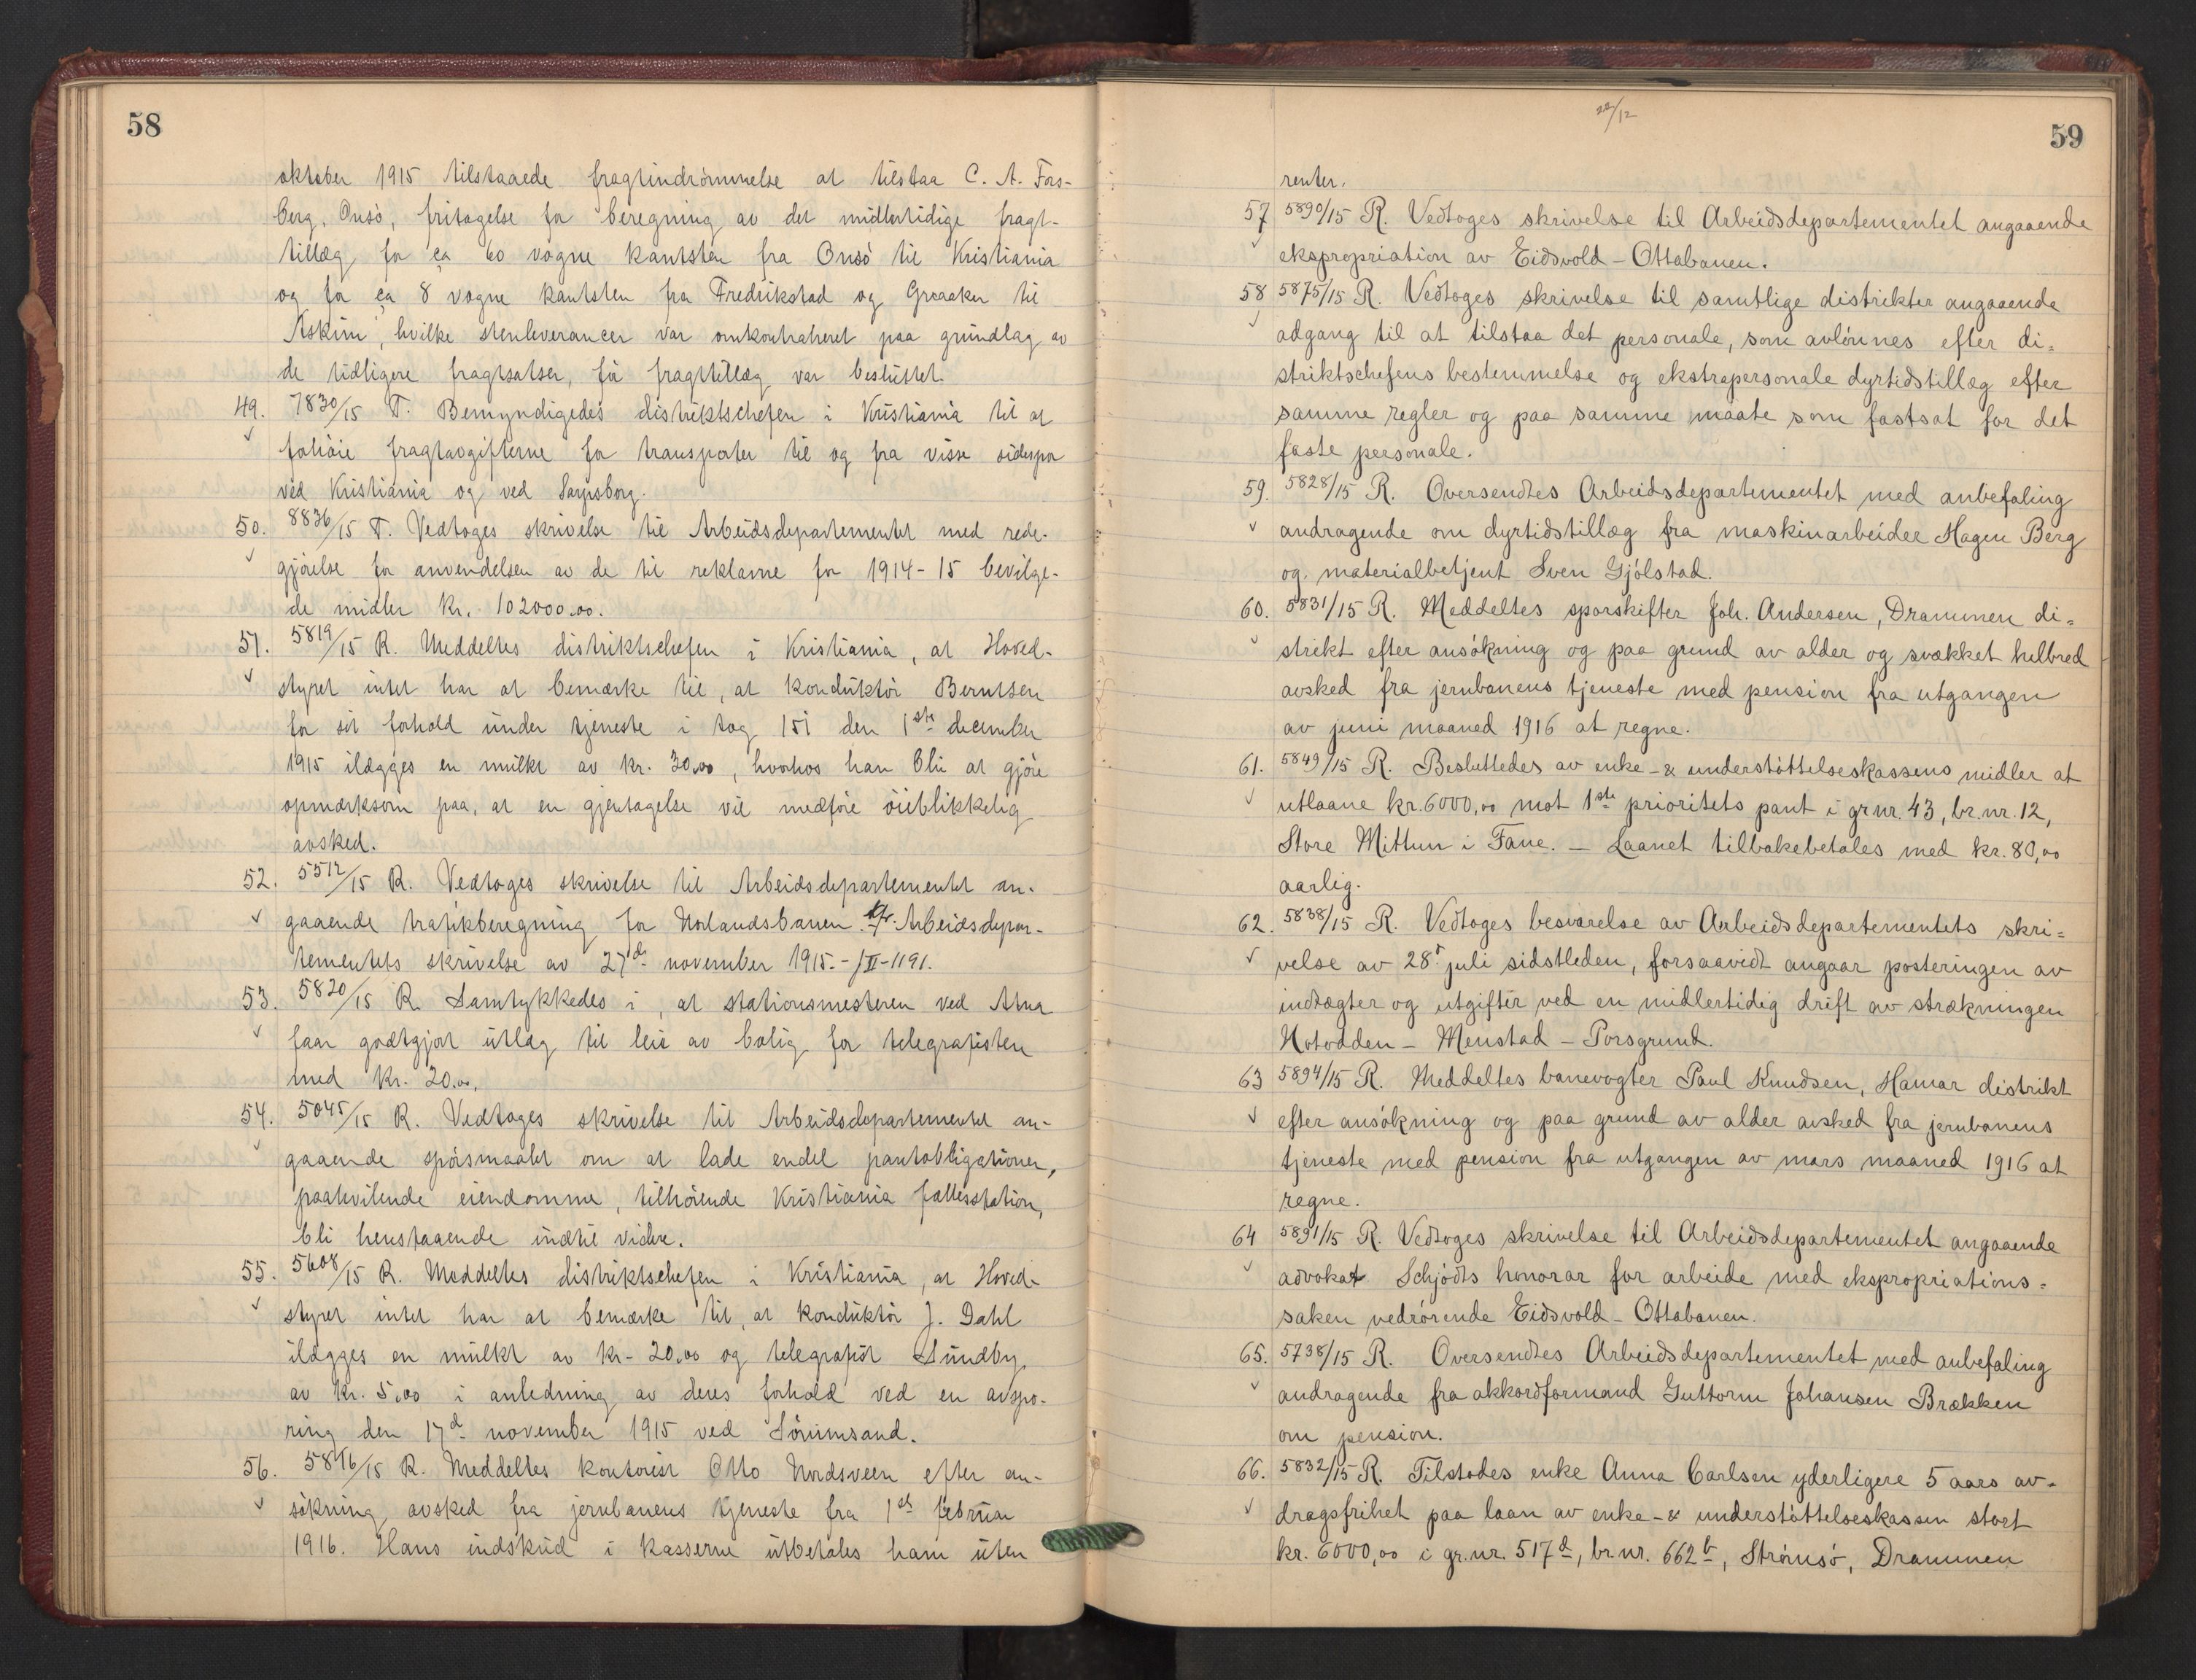 58
oktober 1915 tilstaaede fragtindrømmelse at tilstaa C. A. Fors-
berg, Onsø, fritagelse for beregning av det midlertidige fragt-
tillæg for ca 60 vogne kantsten fra Onsø til Kristiania
og for ca 8 vogne kantsten fra Fredrikstad og Greaaker til
Askim, hvilke stenleverancer var omkontraheret paa grundlag av
de tidligere fragtsatser, før fragttillæg var besluttet.
49. 7830/15 T. Bemyndigedes distriktschefen i Kristiania til at
forhøie fragtavgifterne for transporter til og fra visse sidespor
ved Kristiania og ved Sarpsborg.
50. 8836/15 T. Vedtoges skrivelse til Arbeidsdepartementet med rede-
gjørelse for anvendelsen av de til reklame for 1914-15 bevilge-
de midler kr. 102000.00.
51. 5819/15 R. Meddeltes distriktschefen i Kristiania, at Hoved-
styret intet har at bemærke til, at konduktør Berntsen
for sit forhold under tjeneste i tog 151 den 1ste december
1915 ilægges en mulkt av kr. 30.00, hvorhos han blir at gjøre
opmerksom paa, at en gjentagelse vil medføre øieblikkelig
avsked.
52. 5512/15 R. Vedtoges skrivelse til Arbeidsdepartementet an-
gaaende trafikberegning for Norlandsbanen. kfr. Arbeidsdepar-
tementets skrivelse av 27de november 1915.-JII-1191.
53. 5820/15 R. Samtykkedes i, at stationsmesteren ved Atna
faar godtgjort utlæg til leie av bolig for telegrafisten
med kr. 20.00.
54. 5045/15 R. Vedtoges skrivelse til Arbeidsdepartementet an-
gaaende spørsmaalet om at lade endel pantobligationer,
paahvilende eiendomme, tilhørende Kristiania fællesstation,
bli henstaaende indtil videre.
55. 5608/15 R. Meddeltes distriktschefen i Kristiania, at Hoved-
styret intet har at bemærke til, at konduktør J. Dahl
ilægges en mulkt av kr. 20.00 og telegrafist Sundby
av kr. 5.00 i anledning av deres forhold ved en avspo-
ring den 17d november 1915 ved Sørumsand.
56. 5846/15 R. Meddeltes kontorist Otto Nordsveen efter an-
søkning avsked fra jernbanens tjeneste fra 1st februar
1916. Hans indskud i kasserne utbetales ham uten
22/12
59
renter.
57 5890/15 R. Vedtoges skrivelse til Arbeidsdepartementet angaaende
ekspropriation av Eidsvold-Ottabanen.
58 5875/15 R. Vedtoges skrivelse til samtlige distrikter angaaende
adgang til at tilstaa det personale, som avlønnes efter di=
striktschefens bestemmelse og ekstrapersonale dyrtidstillæg efter
samme regler og paa samme maate som fastsat for det
faste personale.
59. 5828/15 R. Oversendtes Arbeidsdepartementet med anbefaling
andragende om dyrtidstillæg fra maskinarbeider Hagen Berg
og materialbetjent Sven Gjølstad.
60. 5831/15 R. Meddeltes sporskifter Joh. Andersen, Drammen di=
strikt efter ansøkning og paa grund av alder og svækket helbred
avsked fra jernbanens tjeneste med pension fra utgangen
av juni maaned 1916 at regne.
61. 5849/15 R. Besluttedes av enke- & understøttelseskassens midler at
utlaane kr. 6000,00 mot 1ste prioritets pant i gr.nr. 43, br.nr. 12,
Store Mittun i Fane. - Laanet tilbakebetales med kr. 80,00
aarlig.
62. 5838/15 R. Vedtoges besvarelse av Arbeidsdepartementets skri=
velse av 28d juli sidstleden, forsaavidt angaar posteringen av
indtægter og utgifter ved en midlertidig drift av strækningen
Notodden - Menstad - Porsgrund.
63 5894/15 R. Meddeltes banevogter Paul Knudsen, Hamar distrikt
efter ansøkning og paa grund av alder avsked fra jernbanens
tjeneste med pension fra utgangen av mars maaned 1916 at
regne.
64 5891/15 R. Vedtoges skrivelse til Arbeidsdepartementet angaaende
advokat Schjødts honorar for arbeide med ekspropriations=
saken vedrørende Eidsvold-Ottabanen.
65. 5738/15 R. Oversendtes Arbeidsdepartementet med anbefaling
andragende fra akkordformand Guttorm Johansen Brækken
om pension.
66. 5832/15 R. Tilstodes enke Anna Carlsen yderligere 5 aars av=
dragsfrihet paa laan av enke- & understøttelseskassen stort
kr. 6000,00 i gr.nr. 517d, br.nr. 662b, Strømsø, Drammen